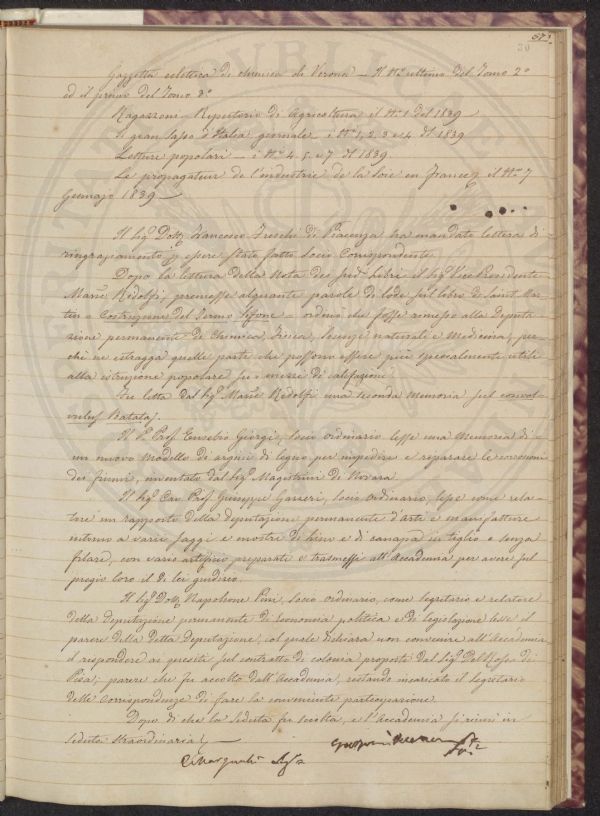 57.
30
Gazzetta ecletica di chimica di Verona — Il N.º ultimo del Tomo 2º
ed il primo del Tomo 3º
Ragazzoni — Repertorio di Agricoltura il Nº 1 del 1839 —
Il gran Sasso d'Italia giornale — i Nⁱ 1, 2, 3 e 4 del 1839
Letture popolari — i Nⁱ 4. 5. e 7 del 1839.
Le propagateur de l'industrie de la Soie en France, il Nº 7
Gennajo 1839 —
Il Sig. Dott. Francesco Freschi di Piacenza ha mandato lettera di
ringraziamento essere stato fatto Socio Corrispondente.
Dopo la lettura della Nota dei Libri il Sig. Vice Presidente
March. Ridolfi, premesse alquante parole di lode sul libro di Saint Mar-
tin — Costruzione del Termo Sifone — ordinò che fosse rimesso alla Deputa-
zione permanente di Chimica, Fisica, Scienze naturali e Medicina, per-
chè ne estragga quelle parti che possono essere più specialmente utili
alla istruzione popolare su i mezzi di calefazione.
Fu letta dal Sig. March. Ridolfi una seconda Memoria sul convol-
vulus Batatas.
Il P. Prof. Eusebio Giorgi, Socio ordinario lesse una Memoria di
un nuovo modello di argini di legno per impedire e reparare le corrosioni
dei fiumi, inventato dal Sig. Magistrini di Novara.
Il Sig. Cav. Prof. Giuseppe Gazzeri, Socio ordinario, lesse come rela-
tore un rapporto della deputazione permanente d'arti e manifatture
intorno a varii saggi e mostre di lino e di canapa in tiglio e senza
filare, con vario artifizio preparati e trasmessi all'Accademia per avere sul
pregio loro il di lei giudizio.
Il Sig. Dott. Napoleone Pini, Socio ordinario, come Segretario e relatore
della Deputazione permanente di Economia politica e di legislazione lesse il
parere della detta Deputazione, col quale dichiara non convenire all'Accademia
il rispondere ai quesiti sul contratto di colonia proposti dal Sig. Del Rosso di
Pisa; parere che fu accolto dall'Accademia, restando incaricato il Segretario
delle corrispondenze di fare la conveniente partecipazione.
Dopo di che la Seduta fu sciolta, e l'Accademia si riunì in
Seduta straordinaria